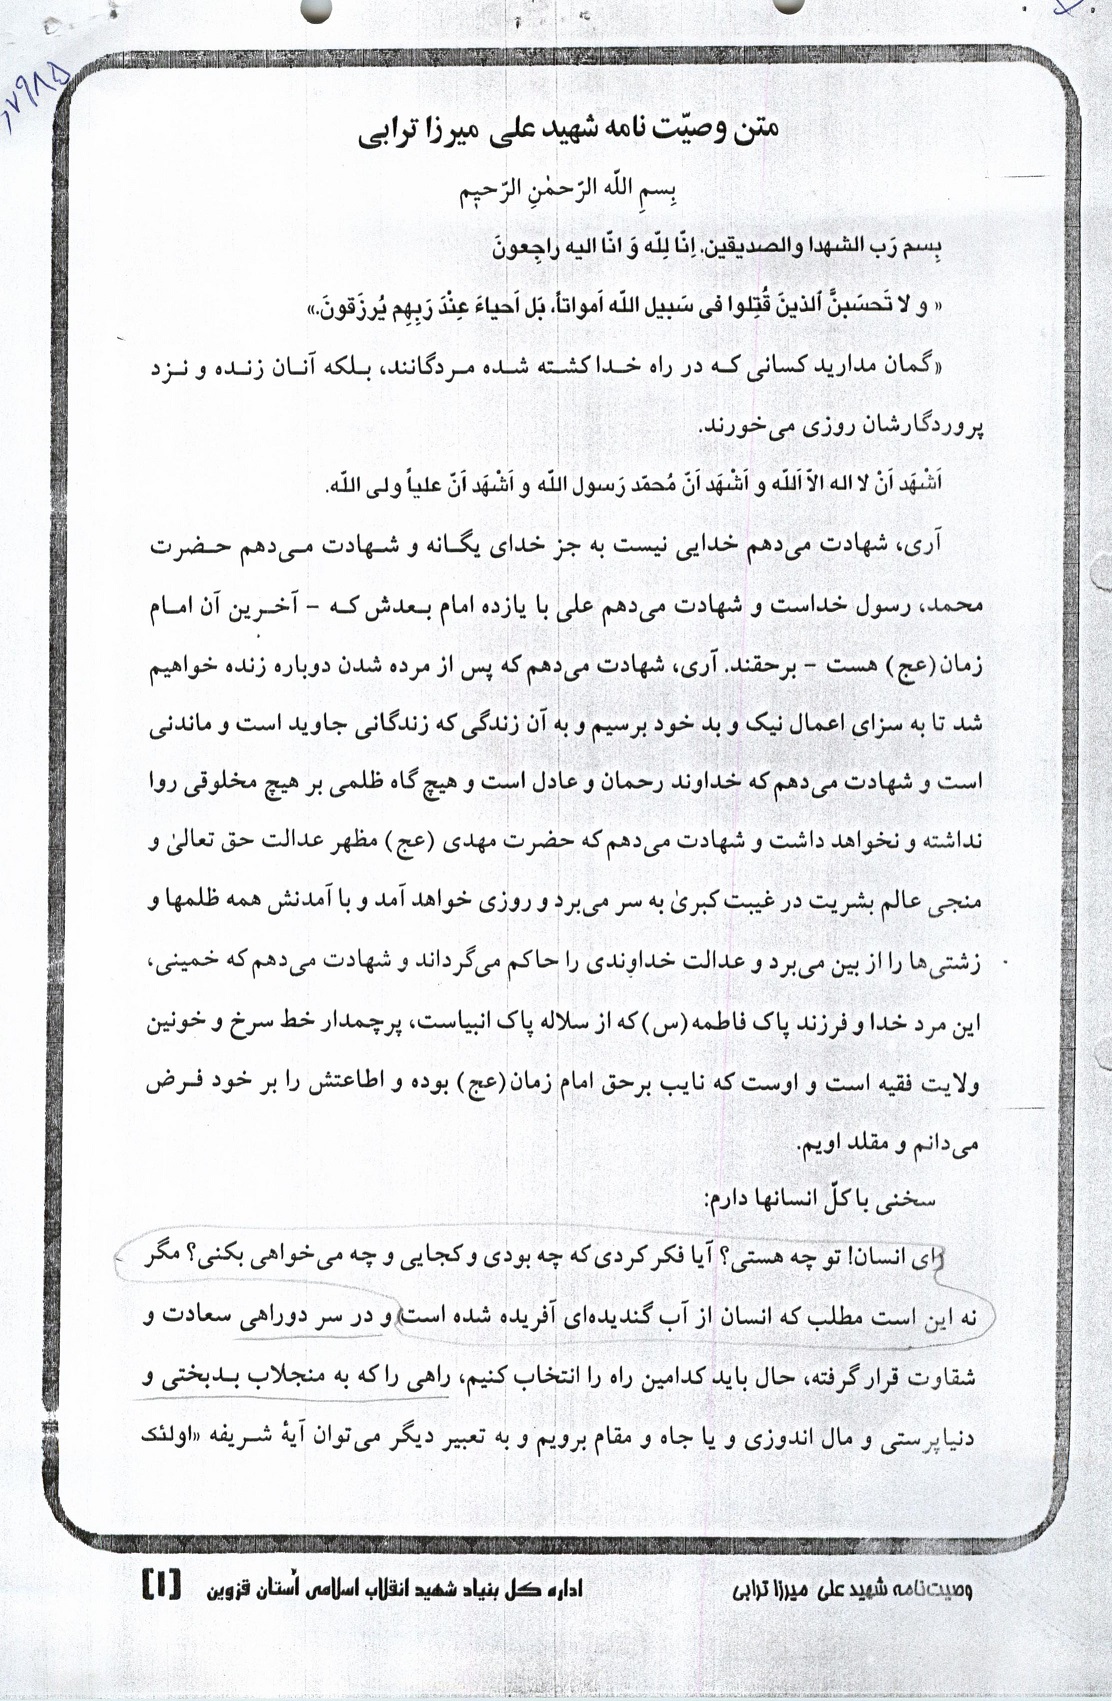 ۶۷۹۸۵
متن وصیّت نامه شهید علی میرزا ترابی
بِسمِ اللّه الرّحمٰنِ الرّحیم
بِسم رَب الشهدا والصدیقین. اِنّا لِلّه وَ انّا الیه راجِعونَ
« و لا تَحسَبنَّ اَلذینَ قُتِلوا فی سَبیل اللّه اَمواتاً، بَل اَحیاءَ عِنْدَ رَبِهِم یُرزَقونَ.»
«گمان مدارید کسانی که در راه خدا کشته شده مردگانند، بلکه آنان زنده و نزد
پروردگارشان روزی می‌خورند.
اَشْهَد اَنْ لا اله الاّ اَللّه و اَشْهَد اَنّ مُحمّد رَسول اللّه و اَشْهَد اَنّ علیاً ولی اللّه.
آری، شهادت می‌دهم خدایی نیست به جز خدای یگانه و شهادت می‌دهم حضرت
محمد، رسول خداست و شهادت می‌دهم علی با یازده امام بعدش که - آخرین آن امام
زمان(عج) هست - برحقند. آری، شهادت می‌دهم که پس از مرده شدن دوباره زنده خواهیم
شد تا به سزای اعمال نیک و بد خود برسیم و به آن زندگی که زندگانی جاوید است و ماندنی
است و شهادت می‌دهم که خداوند رحمان و عادل است و هیچ گاه ظلمی بر هیچ مخلوقی روا
نداشته و نخواهد داشت و شهادت می‌دهم که حضرت مهدی (عج) مظهر عدالت حق تعالیٰ و
منجی عالم بشریت در غیبت کبریٰ به سر می‌برد و روزی خواهد آمد و با آمدنش همه ظلمها و
زشتی‌ها را از بین می‌برد و عدالت خداوندی را حاکم می‌گرداند و شهادت می‌دهم که خمینی،
این مرد خدا و فرزند پاک فاطمه(س) که از سلاله پاک انبیاست، پرچمدار خط سرخ و خونین
ولایت فقیه است و اوست که نایب برحق امام زمان(عج) بوده و اطاعتش را بر خود فرض
می‌دانم و مقلد اویم.
سخنی با کلّ انسانها دارم:
ای انسان! تو چه هستی؟ آیا فکر کردی که چه بودی و کجایی و چه می‌خواهی بکنی؟ مگر
نه این است مطلب که انسان از آب گندیده‌ای آفریده شده است و در سر دوراهی سعادت و
شقاوت قرار گرفته، حال باید کدامین راه را انتخاب کنیم، راهی را که به منجلاب بدبختی و
دنیاپرستی و مال اندوزی و یا جاه و مقام برویم و به تعبیر دیگر می‌توان آیهٔ شریفه «اولئک
وصیت‌نامه شهید علی میرزا ترابی
اداره کل بنیاد شهید انقلاب اسلامی اُستان قزوین [۱]